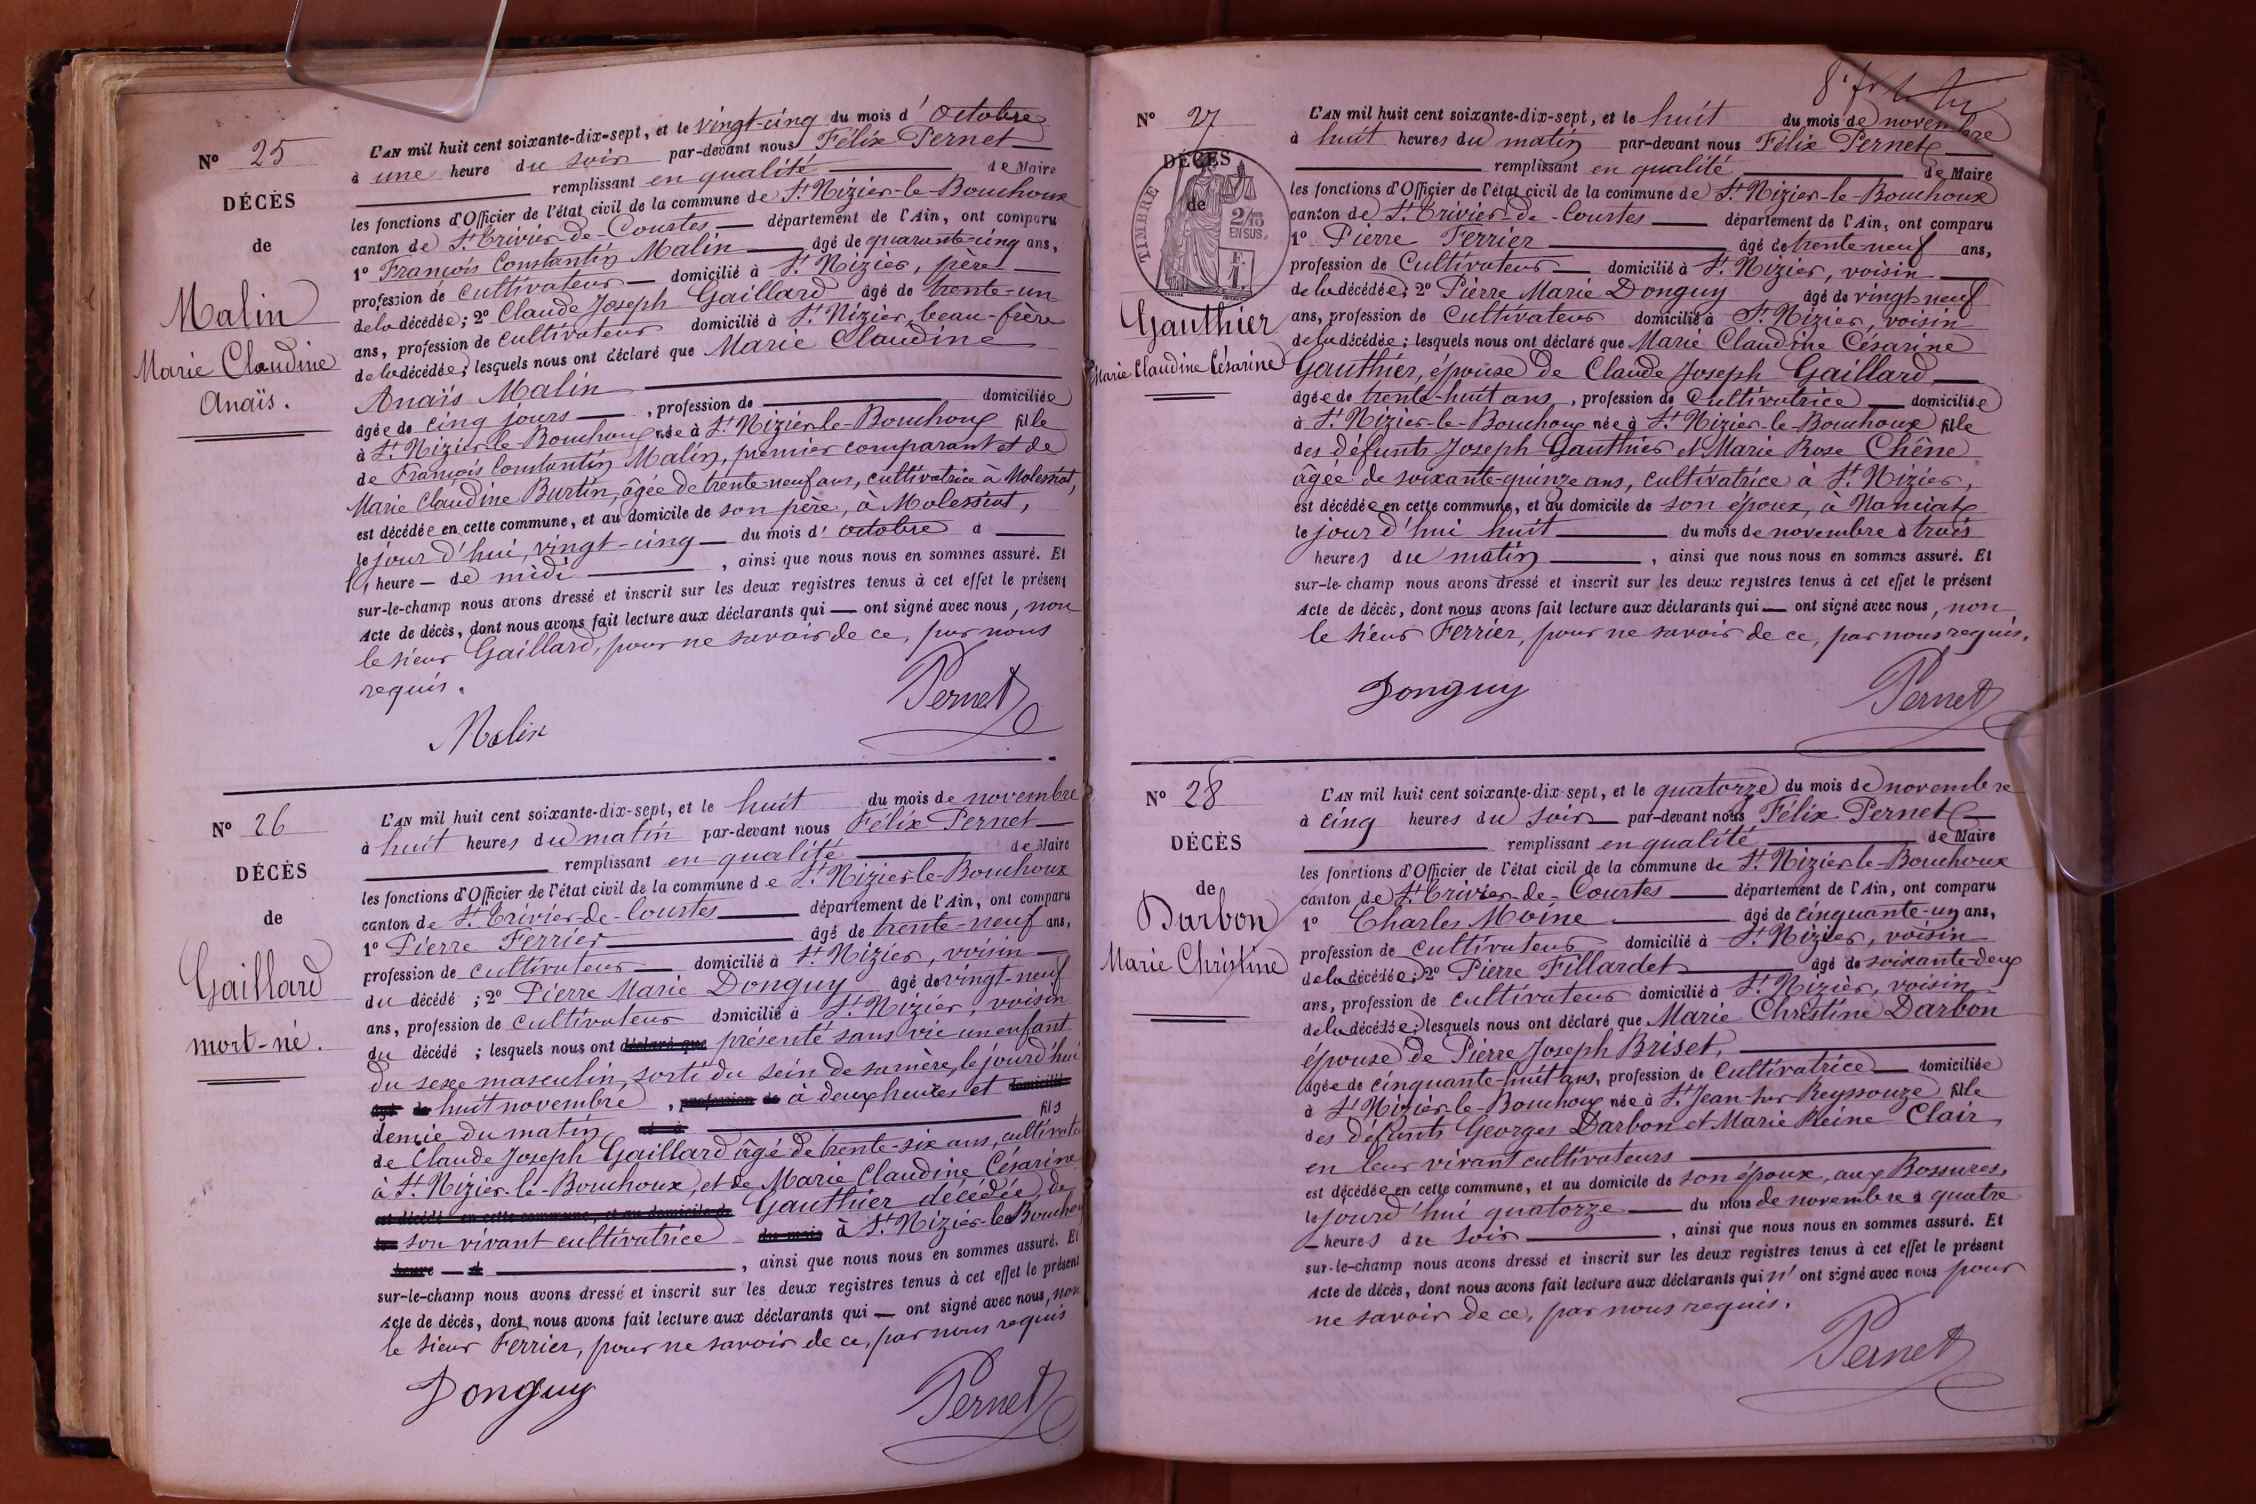 Nº 25
DÉCÈS
de
Malin
Marie Claudine
Anaïs.
L'AN mil huit cent soixante-dix-sept, et le vingt-cinq du mois d'octobre
à une heure du soir par-devant nous Félix Pernet
remplissant en qualité de Maire
les fonctions d'Officier de l'état civil de la commune de St Nizier-le-Bouchoux
canton de St Trivier-de-Courtes département de l'Ain, ont comparu
1º François Constantin Malin âgé de quarante-cinq ans,
profession de cultivateur domicilié à St Nizier, père
de la décédée; 2º Claude Joseph Gaillard âgé de trente-un
ans, profession de cultivateur domicilié à St Nizier, beau-frère
de la décédée; lesquels nous ont déclaré que Marie Claudine
Anaïs Malin
âgée de cinq jours, profession de domiciliée
à St Nizier-le-Bouchoux née à St Nizier-le-Bouchoux fille
de François Constantin Malin, premier comparant et de
Marie Claudine Burtin, âgée de trente-neuf ans, cultivatrice à Molessiat,
est décédée en cette commune, et au domicile de son père, à Molessiat,
le jour d'hui, vingt-cinq du mois d'octobre à
l'heure de midi, ainsi que nous nous en sommes assuré. Et
sur-le-champ nous avons dressé et inscrit sur les deux registres tenus à cet effet le présent
Acte de décès, dont nous avons fait lecture aux déclarants qui ont signé avec nous, non
le sieur Gaillard, pour ne savoir de ce, par nous
requis.
Malin
Pernet
Nº 26
DÉCÈS
de
Gaillard
mort-né.
L'AN mil huit cent soixante-dix-sept, et le huit du mois de novembre
à huit heures du matin par-devant nous Félix Pernet
remplissant en qualité de Maire
les fonctions d'Officier de l'état civil de la commune de St Nizier-le-Bouchoux
canton de St Trivier-de-Courtes département de l'Ain, ont comparu
1º Pierre Ferrier âgé de trente-neuf ans,
profession de cultivateur domicilié à St Nizier, voisin
du décédé; 2º Pierre Marie Donguy âgé de vingt-neuf
ans, profession de cultivateur domicilié à St Nizier, voisin
du décédé; lesquels nous ont déclaré que présenté sans vie un enfant
du sexe masculin, sorti du sein de sa mère, le jour d'hui
âgé de huit novembre, profession de à deux heures et domicilié
demie du matin et à fils
de Claude Joseph Gaillard âgé de trente-six ans, cultivateur
à St Nizier-le-Bouchoux, et de Marie Claudine Césarine
est décédé en cette commune, et au domicile de Gauthier décédée, de
le son vivant cultivatrice du mois à St Nizier-le-Bouchoux
heure d, ainsi que nous nous en sommes assuré. Et
sur-le-champ nous avons dressé et inscrit sur les deux registres tenus à cet effet le présent
Acte de décès, dont nous avons fait lecture aux déclarants qui ont signé avec nous, non
le sieur Ferrier, pour ne savoir de ce, par nous requis
Donguy
Pernet
Nº 27
DÉCÈS
de
TIMBRE
2/10
EN SUS.
F.
1
Gauthier
Marie Claudine Césarine
L'AN mil huit cent soixante-dix-sept, et le huit du mois de novembre
à huit heures du matin par-devant nous Félix Pernet
remplissant en qualité de Maire
les fonctions d'Officier de l'état civil de la commune de St Nizier-le-Bouchoux
canton de St Trivier-de-Courtes département de l'Ain, ont comparu
1º Pierre Ferrier âgé de trente-neuf ans,
profession de cultivateur domicilié à St Nizier, voisin
de la décédée; 2º Pierre Marie Donguy âgé de vingt-neuf
ans, profession de cultivateur domicilié à St Nizier, voisin
de la décédée; lesquels nous ont déclaré que Marie Claudine Césarine
Gauthier, épouse de Claude Joseph Gaillard
âgée de trente-huit ans, profession de cultivatrice domiciliée
à St Nizier-le-Bouchoux née à St Nizier-le-Bouchoux fille
des défunts Joseph Gauthier et Marie Rose Chêne
âgée de soixante-quinze ans, cultivatrice à St Nizier,
est décédée en cette commune, et au domicile de son époux, à Manciat
le jour d'hui huit du mois de novembre à trois
heures du matin, ainsi que nous nous en sommes assuré. Et
sur-le-champ nous avons dressé et inscrit sur les deux registres tenus à cet effet le présent
Acte de décès, dont nous avons fait lecture aux déclarants qui ont signé avec nous, non
le sieur Ferrier, pour ne savoir de ce, par nous requis.
Donguy
Pernet
Nº 28
DÉCÈS
de
Darbon
Marie Christine
L'AN mil huit cent soixante-dix-sept, et le quatorze du mois de novembre
à cinq heures du soir par-devant nous Félix Pernet
remplissant en qualité de Maire
les fonctions d'Officier de l'état civil de la commune de St Nizier-le-Bouchoux
canton de St Trivier-de-Courtes département de l'Ain, ont comparu
1º Charles Moine âgé de cinquante-un ans,
profession de cultivateur domicilié à St Nizier, voisin
de la décédée; 2º Pierre Fillardet âgé de soixante-deux
ans, profession de cultivateur domicilié à St Nizier, voisin
de la décédée; lesquels nous ont déclaré que Marie Christine Darbon
épouse de Pierre Joseph Briset,
âgée de cinquante-huit ans, profession de cultivatrice domiciliée
à St Nizier-le-Bouchoux née à St Jean-sur-Reyssouze fille
des défunts Georges Darbon et Marie Reine Clair
en leur vivant cultivateurs
est décédée en cette commune, et au domicile de son époux, aux Bossures,
le jour d'hui quatorze du mois de novembre à quatre
heures du soir, ainsi que nous nous en sommes assuré. Et
sur-le-champ nous avons dressé et inscrit sur les deux registres tenus à cet effet le présent
Acte de décès, dont nous avons fait lecture aux déclarants qui n'ont signé avec nous pour
ne savoir de ce, par nous requis.
Pernet